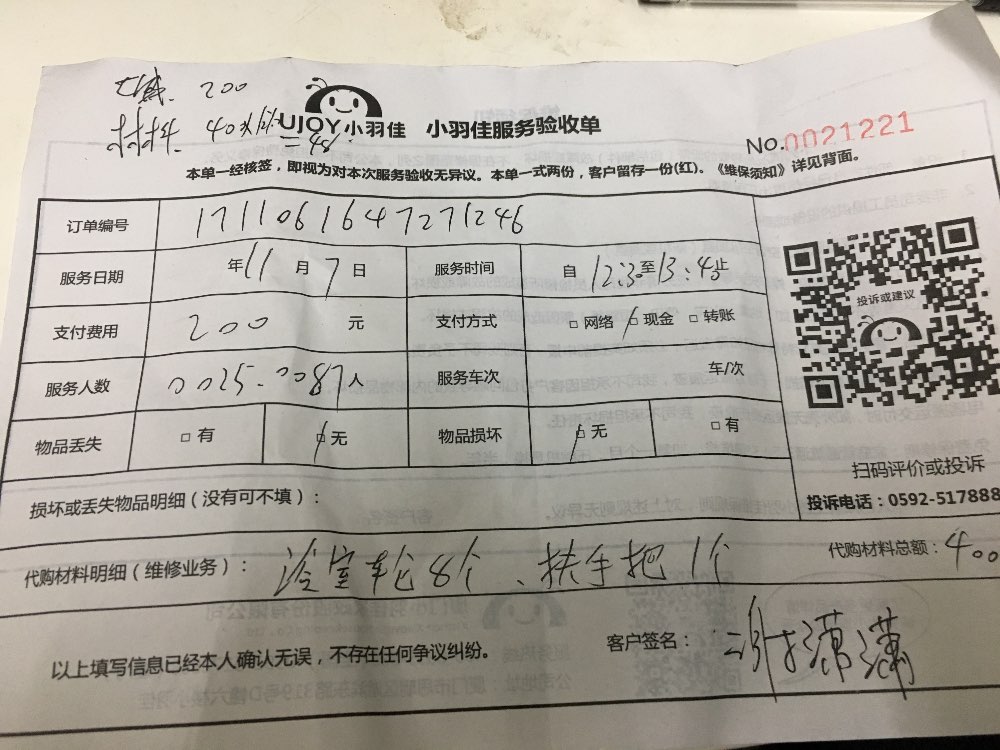 200
材料 40
UJOY 小羽佳 小羽佳服务验收单
No.0021221
本单一经核签，即视为对本次服务验收无异议。本单一式两份，客户留存一份(红)。《维保须知》详见背面。
订单编号 1711061647271246
服务日期 年11月7日 服务时间 自12:30至13:45止
支付费用 200 元 支付方式 □ 网络 □ 现金 □ 转账
服务人数 0025.0087人 服务车次 车/次
物品丢失 □ 有 □ 无 物品损坏 □ 无 □ 有
投诉或建议
扫码评价或投诉
投诉电话：0592-517888
损坏或丢失物品明细（没有可不填）：
代购材料明细（维修业务）： 轮8个、扶手把1个 代购材料总额：400
以上填写信息已经本人确认无误，不存在任何争议纠纷。 客户签名：谢潇潇